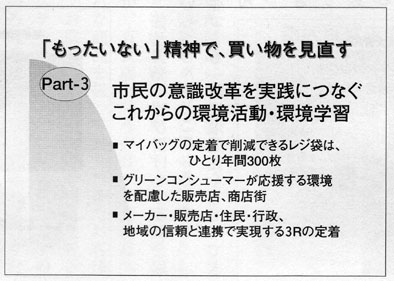 「もったいない」精神で、買い物を見直す
Part-3
市民の意識改革を実践につなぐ
これからの環境活動・環境学習
■ マイバッグの定着で削減できるレジ袋は、
ひとり年間300枚
■ グリーンコンシューマーが応援する環境
を配慮した販売店、商店街
■ メーカー・販売店・住民・行政、
地域の信頼と連携で実現する3Rの定着